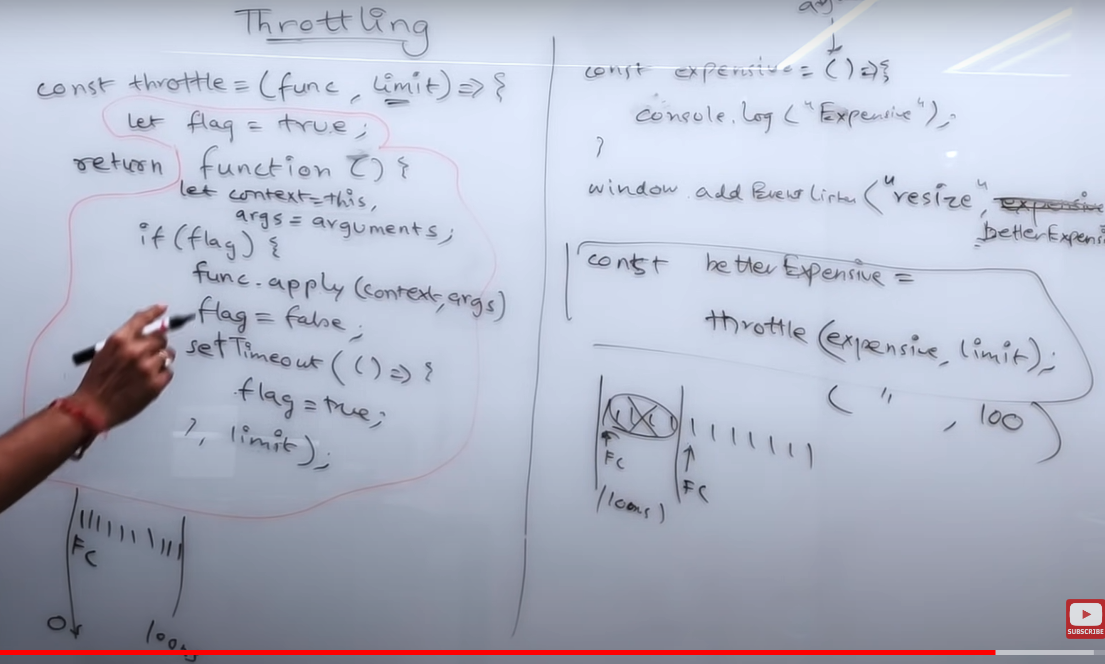 Throttling
const throttle = (func, limit) => {
let flag = true;
return function () {
let context = this,
args = arguments;
if (flag) {
func.apply(context, args)
flag = false;
setTimeout( () => {
flag = true;
}, limit);
FC
0
100
const expensive = () => {
console.log("Expensive");
}
window.addEventListen("resize", expensive
betterExpens
const betterExpensive =
throttle(expensive, limit);
( " , 100 )
FC
FC
(100ms)
SUBSCRIBE